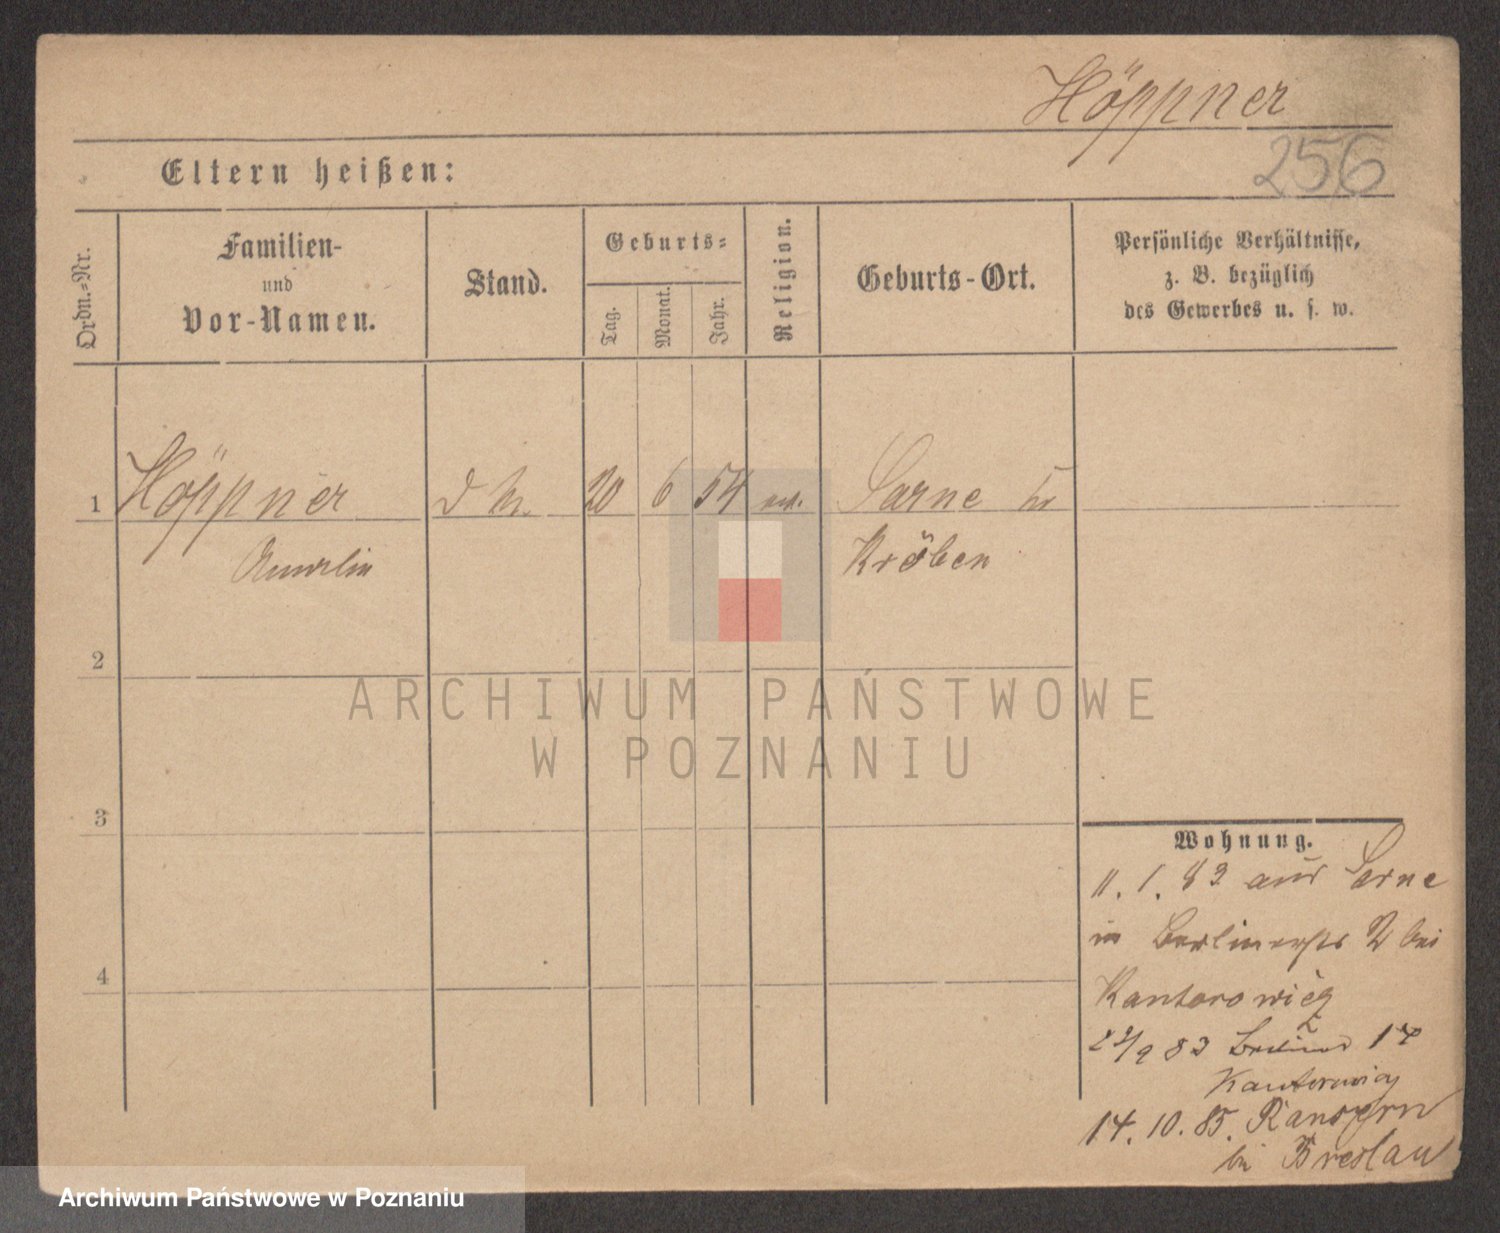 Höppner
256
Eltern heißen:
Ordn.-Nr.
Familien-
und
Vor-Namen.
Stand.
Geburts-
Tag.
Monat.
Jahr.
Religion.
Geburts-Ort.
Persönliche Verhältnisse,
z. B. bezüglich
des Gewerbes u. s. w.
1 Höppner 20 6 54 Sarne
Kröben
2
3
4
Wohnung.
11. 1. 83 aus Sarne
in Berlinerstr 2 bei
Kantorowicz
83 Berliner 17
Kantorowicz
14. 10. 85. Ransern
bei Breslau
ARCHIWUM PAŃSTWOWE
W POZNANIU
Archiwum Państwowe w Poznaniu